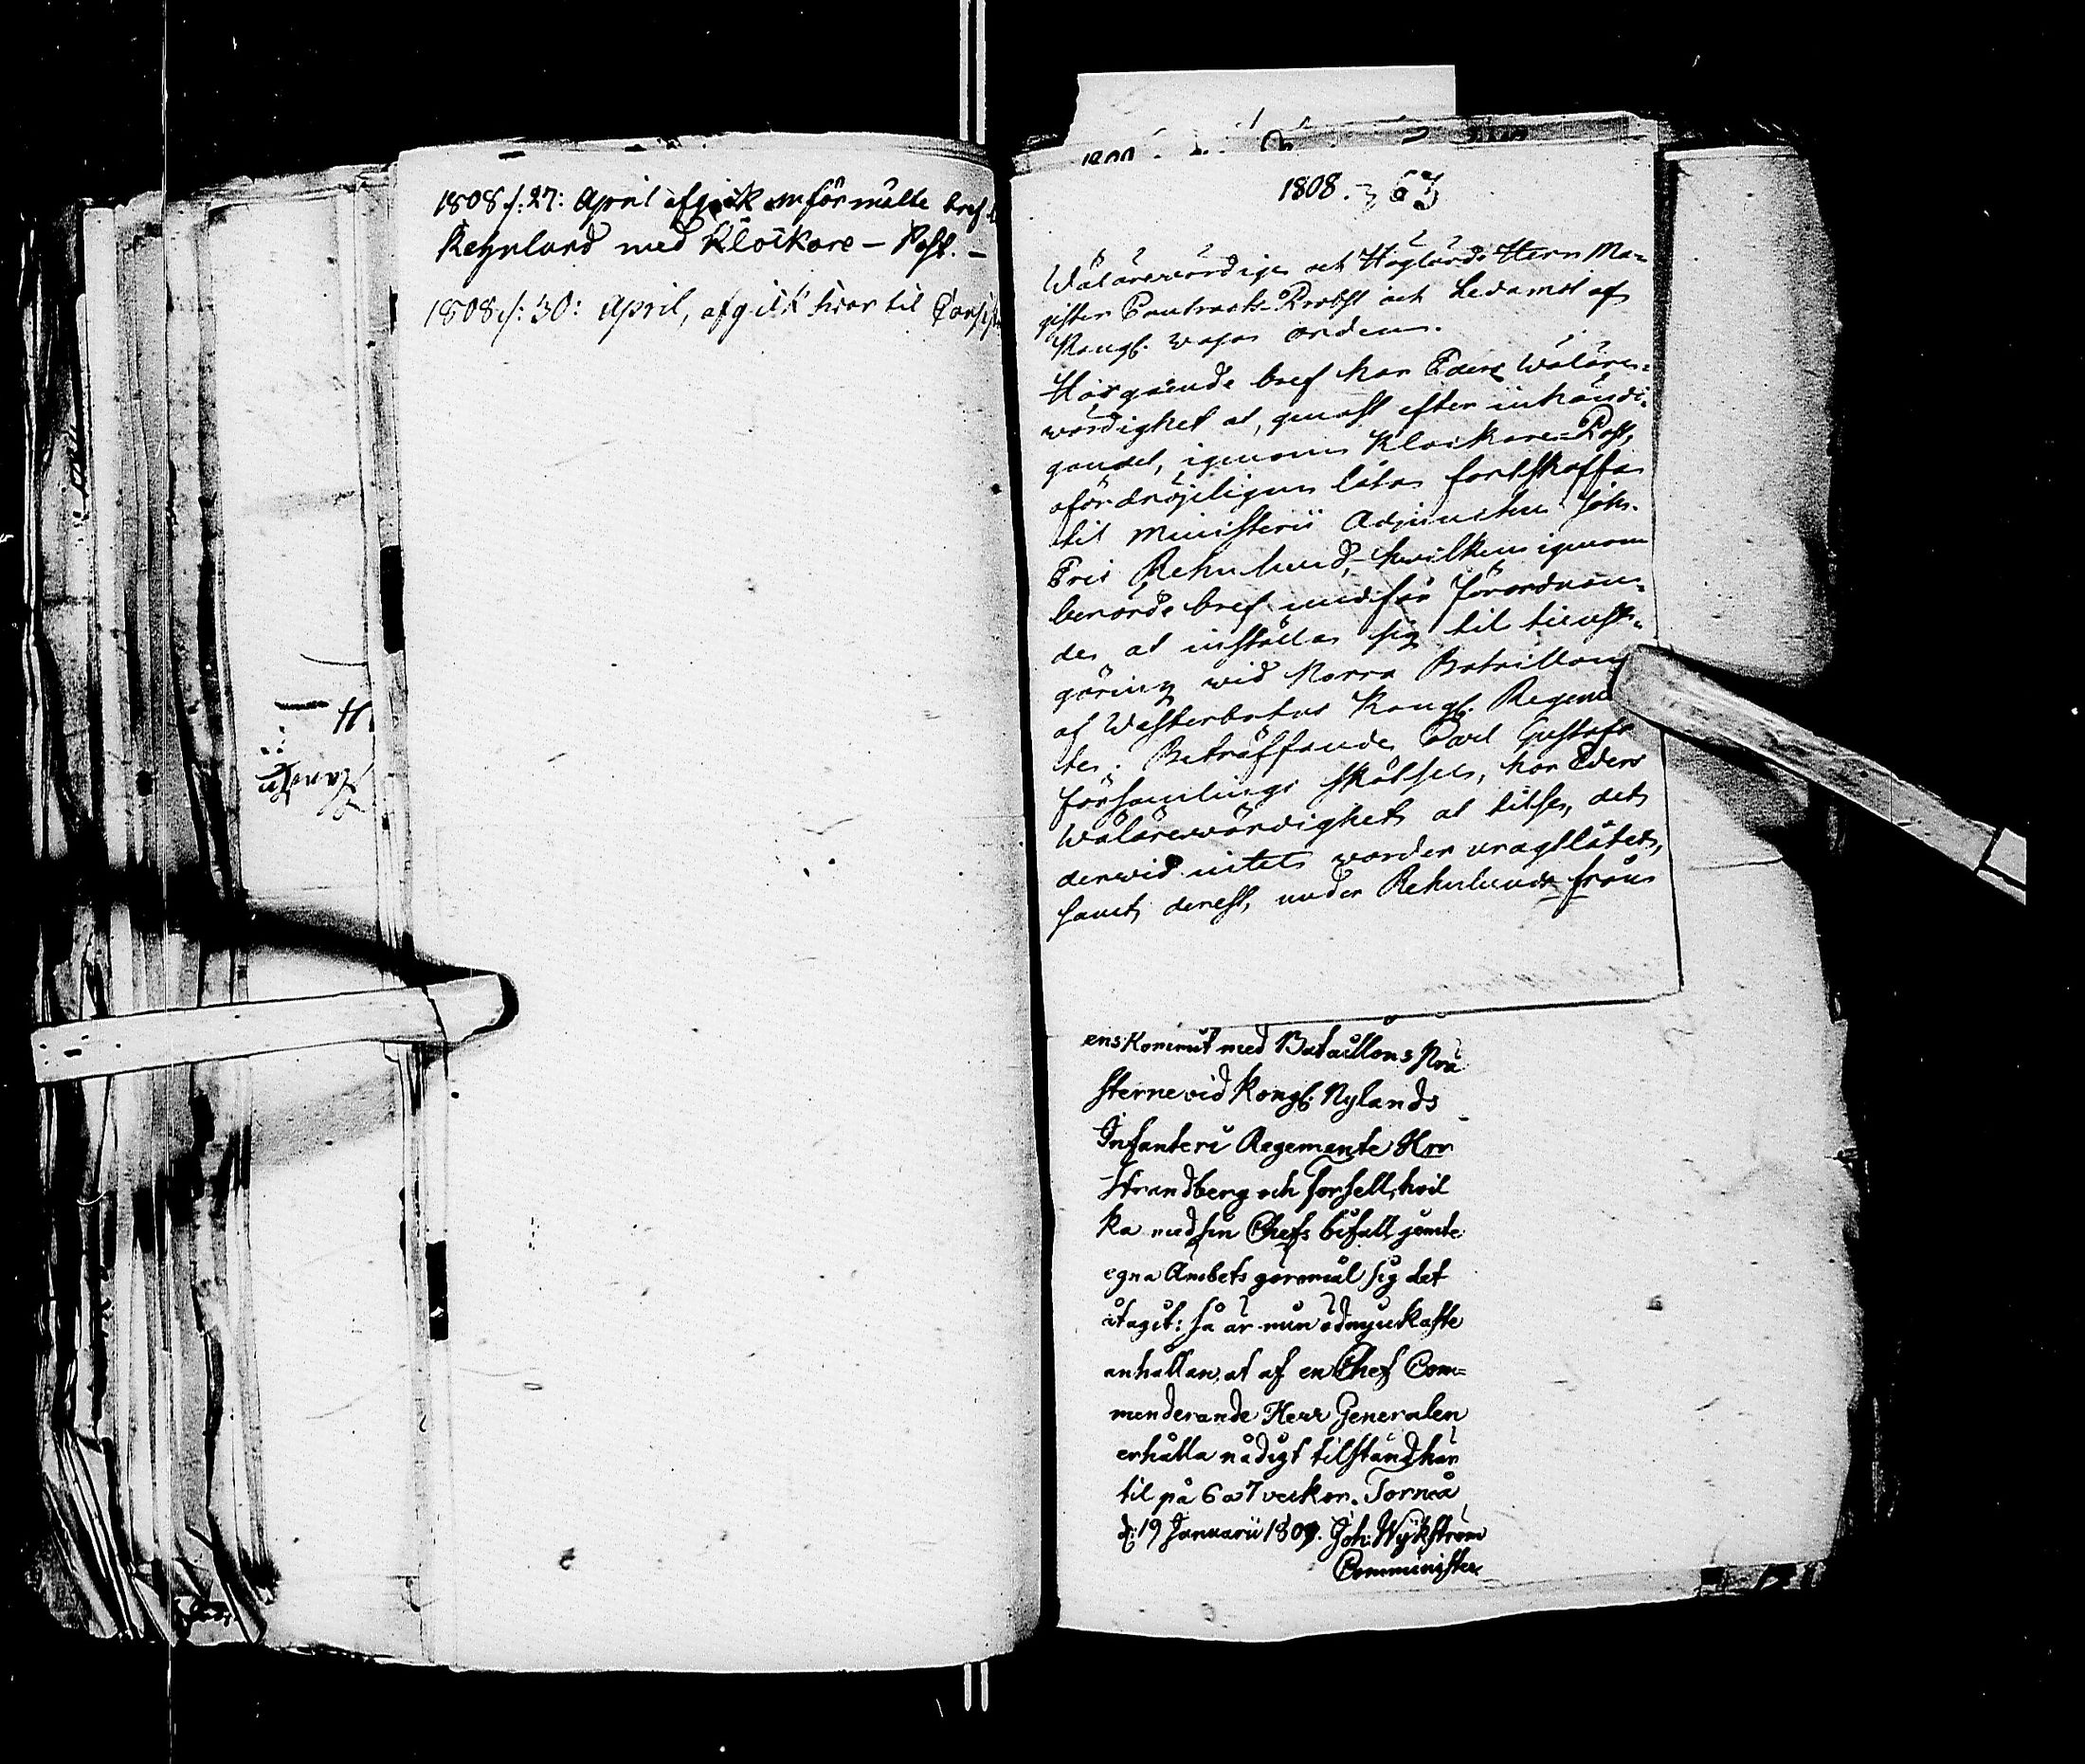 1808 /: 27: April afgick omförmälte bref
Rehnlund med Klåckare-Post. -
1808 /: 30: April, afgick svar til
1808. 63
Wälärewördige och Höglärde Herr Ma-
gister Contracts-Probst och Ledamot af
Kongl. Wasa Orden.
Härgående bref har Eders Wäläre-
wördighet at, genast efter inhändi-
gandet, igenom Klåckare-Post,
ofördröjeligen låta fortskaffa
til Ministerii Adjuncten Joh.
Eric Rehnlund, hwilken igenom
berörde bref undfår förordnan-
de, at inställa sig til tienst-
göring wid Norra Bataillon
af Westerbottns Kongl. Regemen
te. Beträffande Carl Gustafs
församlings skötsel, har Eders
Wälärewördighet at tilse, det
derwid intet warder uragtlåtet,
samt derest, under Rehnlunds från
enskommit med Bataillons Prä
sterne vid Kongl. Nylands
Infanteri Regemente Hrr
Strandberg och Forsell, hvil
ka med sin Chefs bifall jemte
egna Ambets göromål sig det
åtagit: så är min ödmjukaste
anhållan, at af en Chef Com=
menderande Herr Generalen
erhålla nådigt tilstånd här
til på 6 a 7 veckor. Torneå
d. 19 Januarii 1809. Joh. Wykström
Comminister